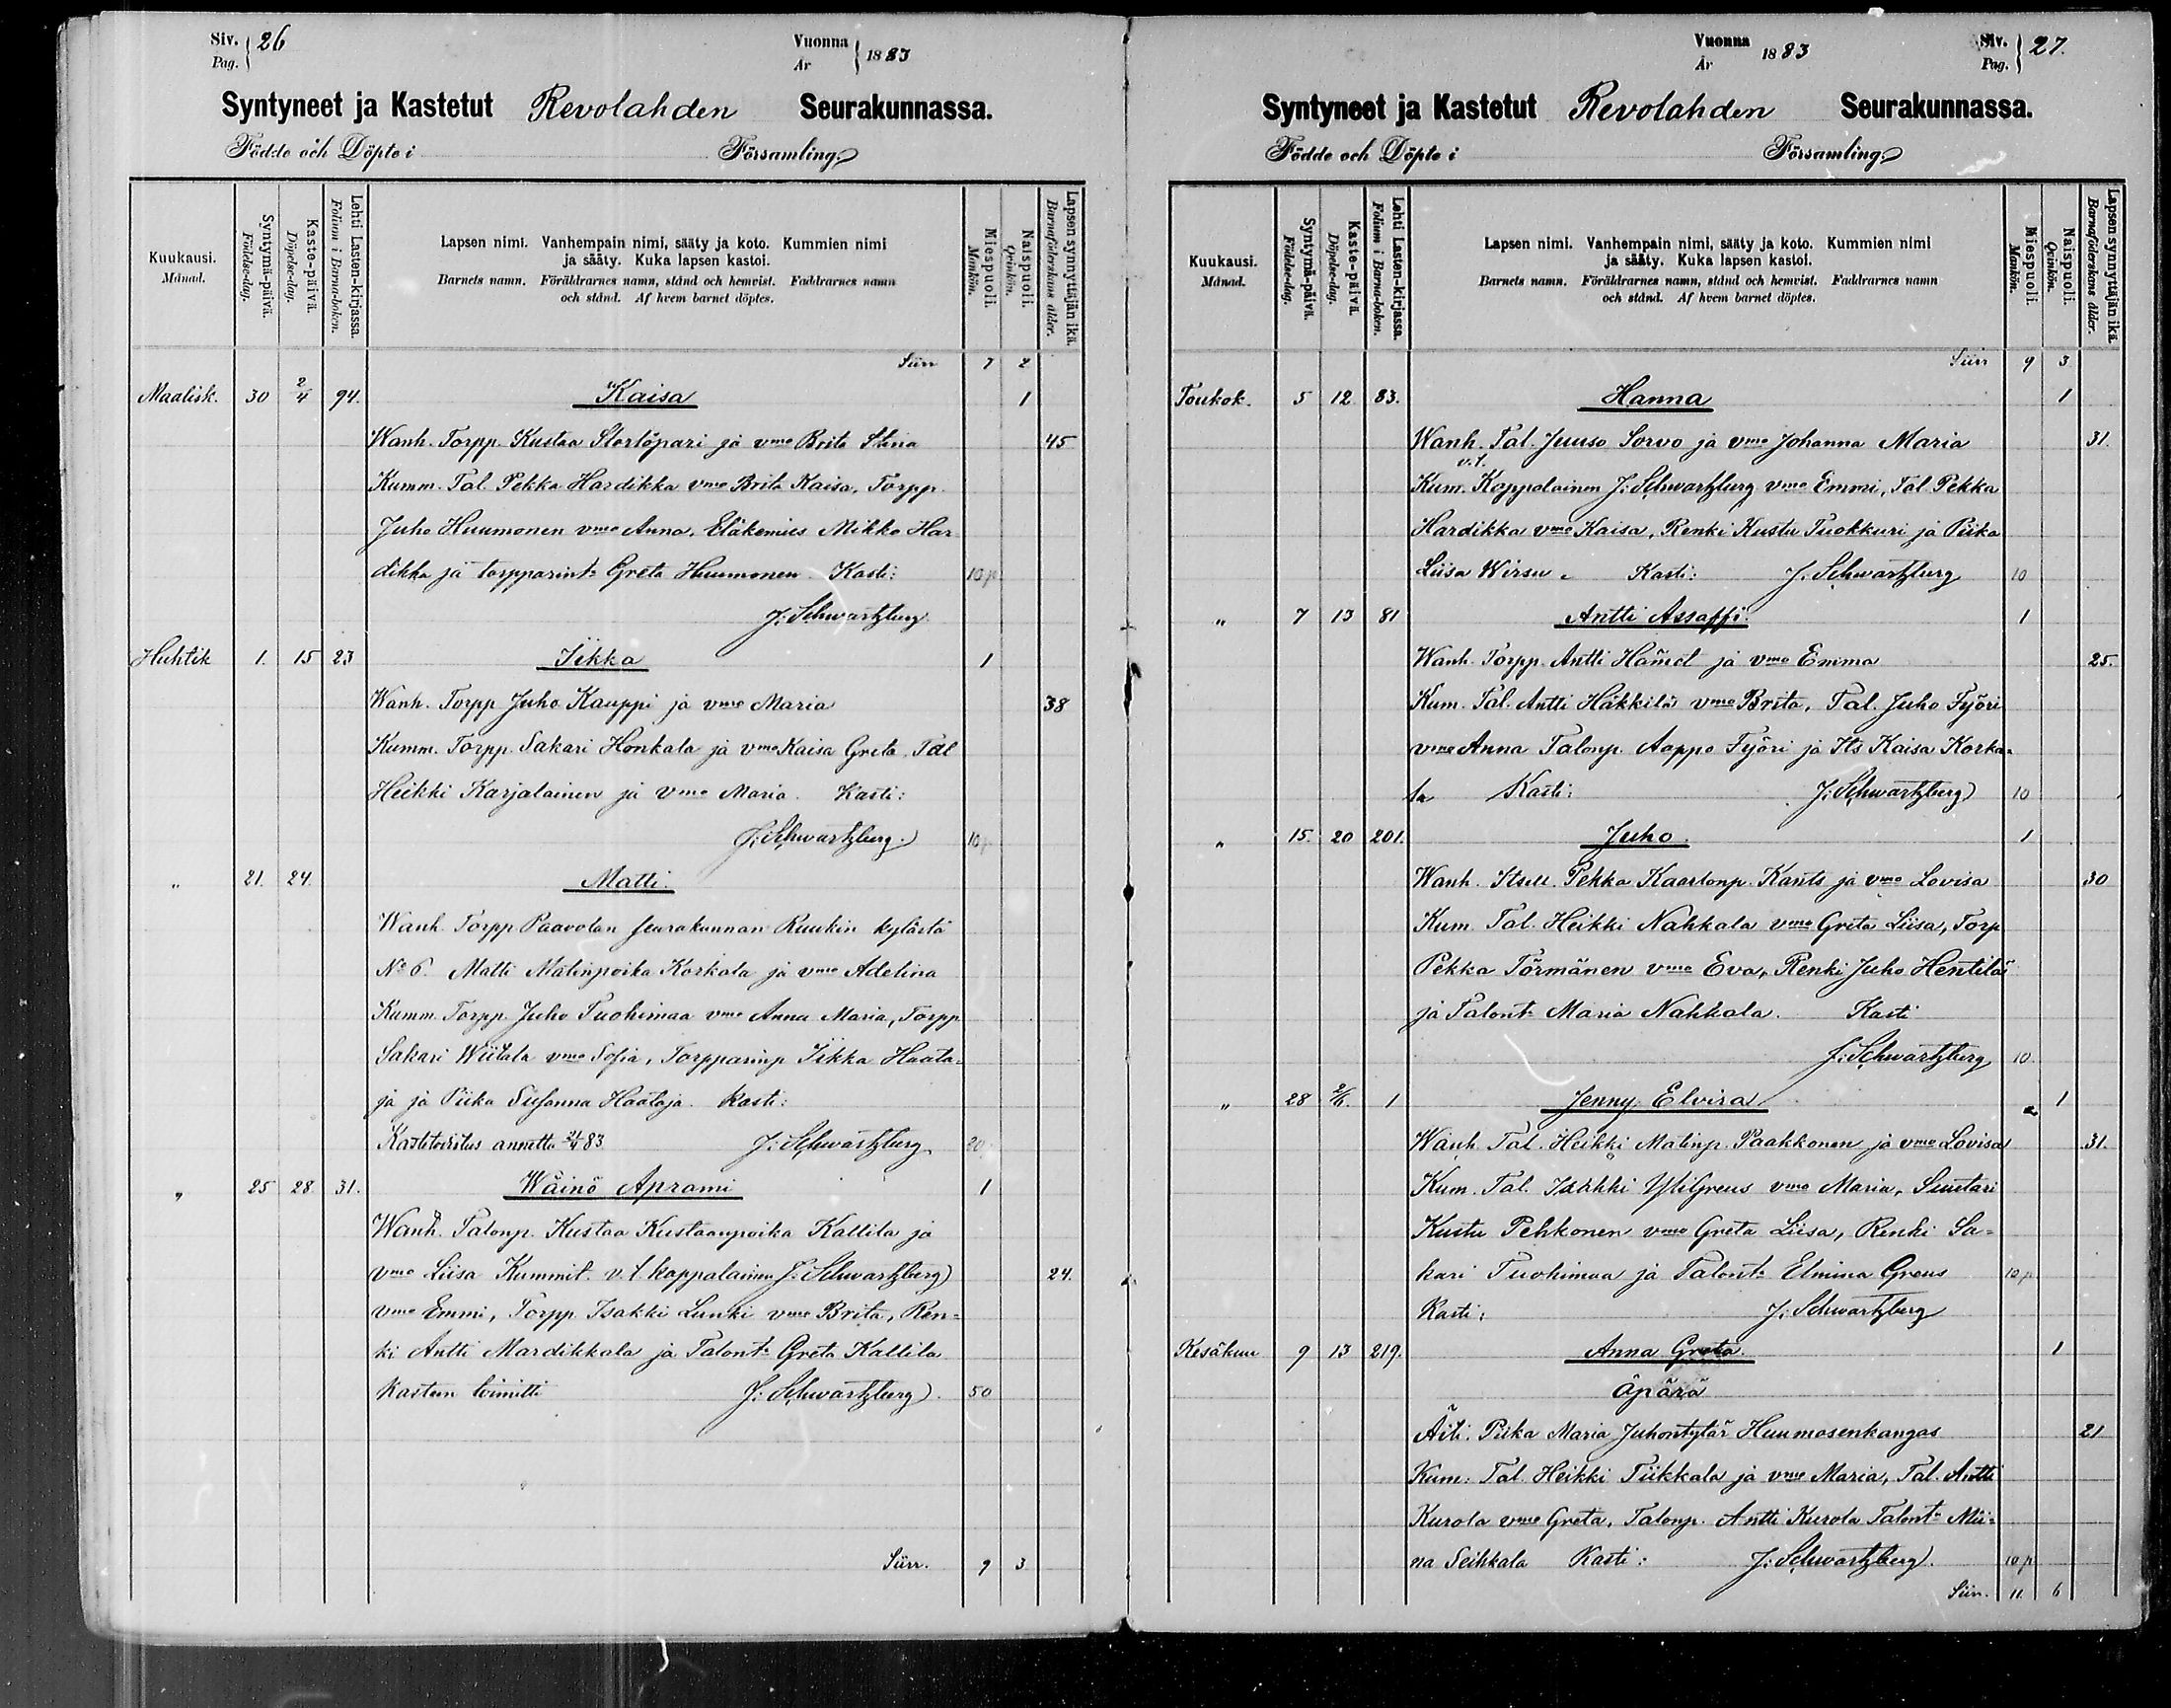 Siv. 26
Pag.
Vuonna 1883
År
Syntyneet ja Kastetut Revolahden Seurakunnassa.
Födde och Döpte i Församling.
Kuukausi. Månad.
Syntymä-päivä. Födelse-dag.
Kaste-päivä. Döpelse-dag.
Lehti Lasten-kirjassa. Folium i Barna-boken.
Lapsen nimi. Vanhempain nimi, sääty ja koto. Kummien nimi
ja sääty. Kuka lapsen kastoi.
Barnets namn. Föräldrarnes namn, stånd och hemvist. Faddrarnes namn
och stånd. Af hvem barnet döptes.
Miespuoli. Mankön.
Naispuoli. Qvinkön.
Lapsen synnyttäjän ikä. Barnaföderskans ålder.
Siirr 7 2
Maalisk. 30 2/4 94. Kaisa 1
Wanh. Torpp. Kustaa Storlöpari ja vmo Brita Stina 45
Kumm. Tal. Pekka Hardikka vmo Brita Kaisa, Torpp.
Juho Huumonen vmo Anna, Eläkemies Mikko Har
dikka ja torpparint. Greta Huumonen. Kasti: 10 p
J: Schwartzberg
Huhtik 1. 15 23 Iikka 1
Wanh. Torpp Juho Kauppi ja vmo Maria 38
Kumm. Torpp. Sakari Honkala ja vmo Kaisa Greta. Tal
Heikki Karjalainen ja vmo Maria. Kasti:
J: Schwartzberg. 10 p
" 21. 24. Matti.
Wanh. Torpp Paavolan seurakunnan Ruukin kylästä
No 6. Matti Matinpoika Korkala ja vmo Adelina
Kumm. Torpp. Juho Tuohimaa vmo Anna Maria, Torpp
Sakari Wiitala vmo Sofia, Torpparinp Iikka Haata-
ja ja Piika Susanna Haataja. Kasti:
Kastetodistus annettu 24/4 83 J: Schwartzberg 20
" 25 28 31. Wäinö Aprami 1
Wanh. Talonp. Kustaa Kustaanpoika Kallila ja
vmo Liisa Kummit. v.t. kappalainen J: Schwartzberg 24.
vmo Emmi, Torpp. Isakki Lunki vmo Brita, Ren-
ki Antti Mardikkala ja Talont. Greta Kallila
Kasteen toimitti J: Schwartzberg. 50
Siirr. 9 3
Vuonna 1883
År
Siv. 27.
Pag.
Syntyneet ja Kastetut Revolahden Seurakunnassa.
Födde och Döpte i Församling.
Kuukausi. Månad.
Syntymä-päivä. Födelse-dag.
Kaste-päivä. Döpelse-dag.
Lehti Lasten-kirjassa. Folium i Barna-boken.
Lapsen nimi. Vanhempain nimi, sääty ja koto. Kummien nimi
ja sääty. Kuka lapsen kastoi.
Barnets namn. Föräldrarnes namn, stånd och hemvist. Faddrarnes namn
och stånd. Af hvem barnet döptes.
Miespuoli. Mankön.
Naispuoli. Qvinkön.
Lapsen synnyttäjän ikä. Barnaföderskans ålder.
Siirr 9 3
Toukok. 5 12 83. Hanna 1
Wanh. Tal. Juuso Sorvo ja vmo Johanna Maria 31.
v.t.
Kum. Kappalainen J: Schwartzberg vmo Emmi, Tal. Pekka
Hardikka vmo Kaisa, Renki Kustu Tuokkuri ja Piika
Liisa Wirsu. Kasti: J: Schwartzberg 10
" 7 13 81 Antti Assaffi. 1
Wanh. Torpp. Antti Hamet ja vmo Emma 25.
Kum. Tal. Antti Häkkilä vmo Brita, Tal. Juho Fyöri
vmo Anna Talonp. Aappo Fyöri ja Its Kaisa Korka-
la Kasti: J: Schwartzberg 10
" 15. 20 201. Juho. 1
Wanh. Itsell. Pekka Kaarlonp. Kants ja vmo Lovisa 30
Kum. Tal. Heikki Nahkala vmo Greta Liisa, Torp
Pekka Törmänen vmo Eva, Renki Juho Hentilä
ja Talont. Maria Nahkala. Kasti
J: Schwartzberg 10
" 28 2/6. 1 Jenny Elvira 1
Wanh. Tal. Heikki Matinp. Paahkonen ja vmo Lovisa 31.
Kum. Tal. Isakki YliGreus vmo Maria, Suutari
Kustu Pehkonen vmo Greta Liisa, Renki Sa-
kari Tuohimaa ja Talont. Elmina Greus 10 p
Kasti: J: Schwartzberg
Kesäkuu 9 13 219. Anna Greta. 1
äpärä
Äiti. Piika Maria Juhontytär Huumosenkangas 21
Kum: Tal. Heikki Tiikkala ja vmo Maria, Tal. Antti
Kurola vmo Greta, Talonp. Antti Kurola Talont. Mii-
na Seihkala Kasti: J: Schwartzberg. 10 p
Siirr. 11 6